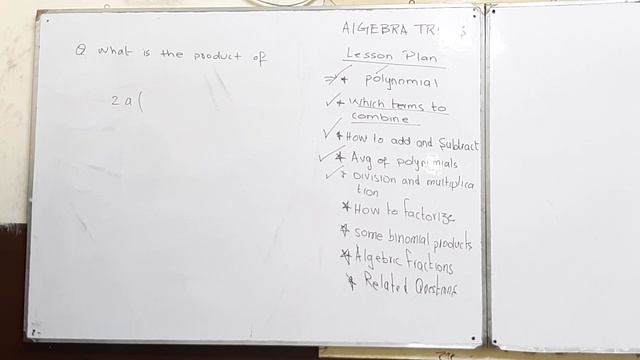 Q What is the product of
2a(
ALGEBRA
Lesson Plan
⇒ * polynomial
✓ * which terms to
combine
✓ * How to add and Subtract
✓ * Avg of polynomials
✓ * Division and multiplica
tion
* How to factorize
* some binomial products
* Algebric fractions
* Related Questions